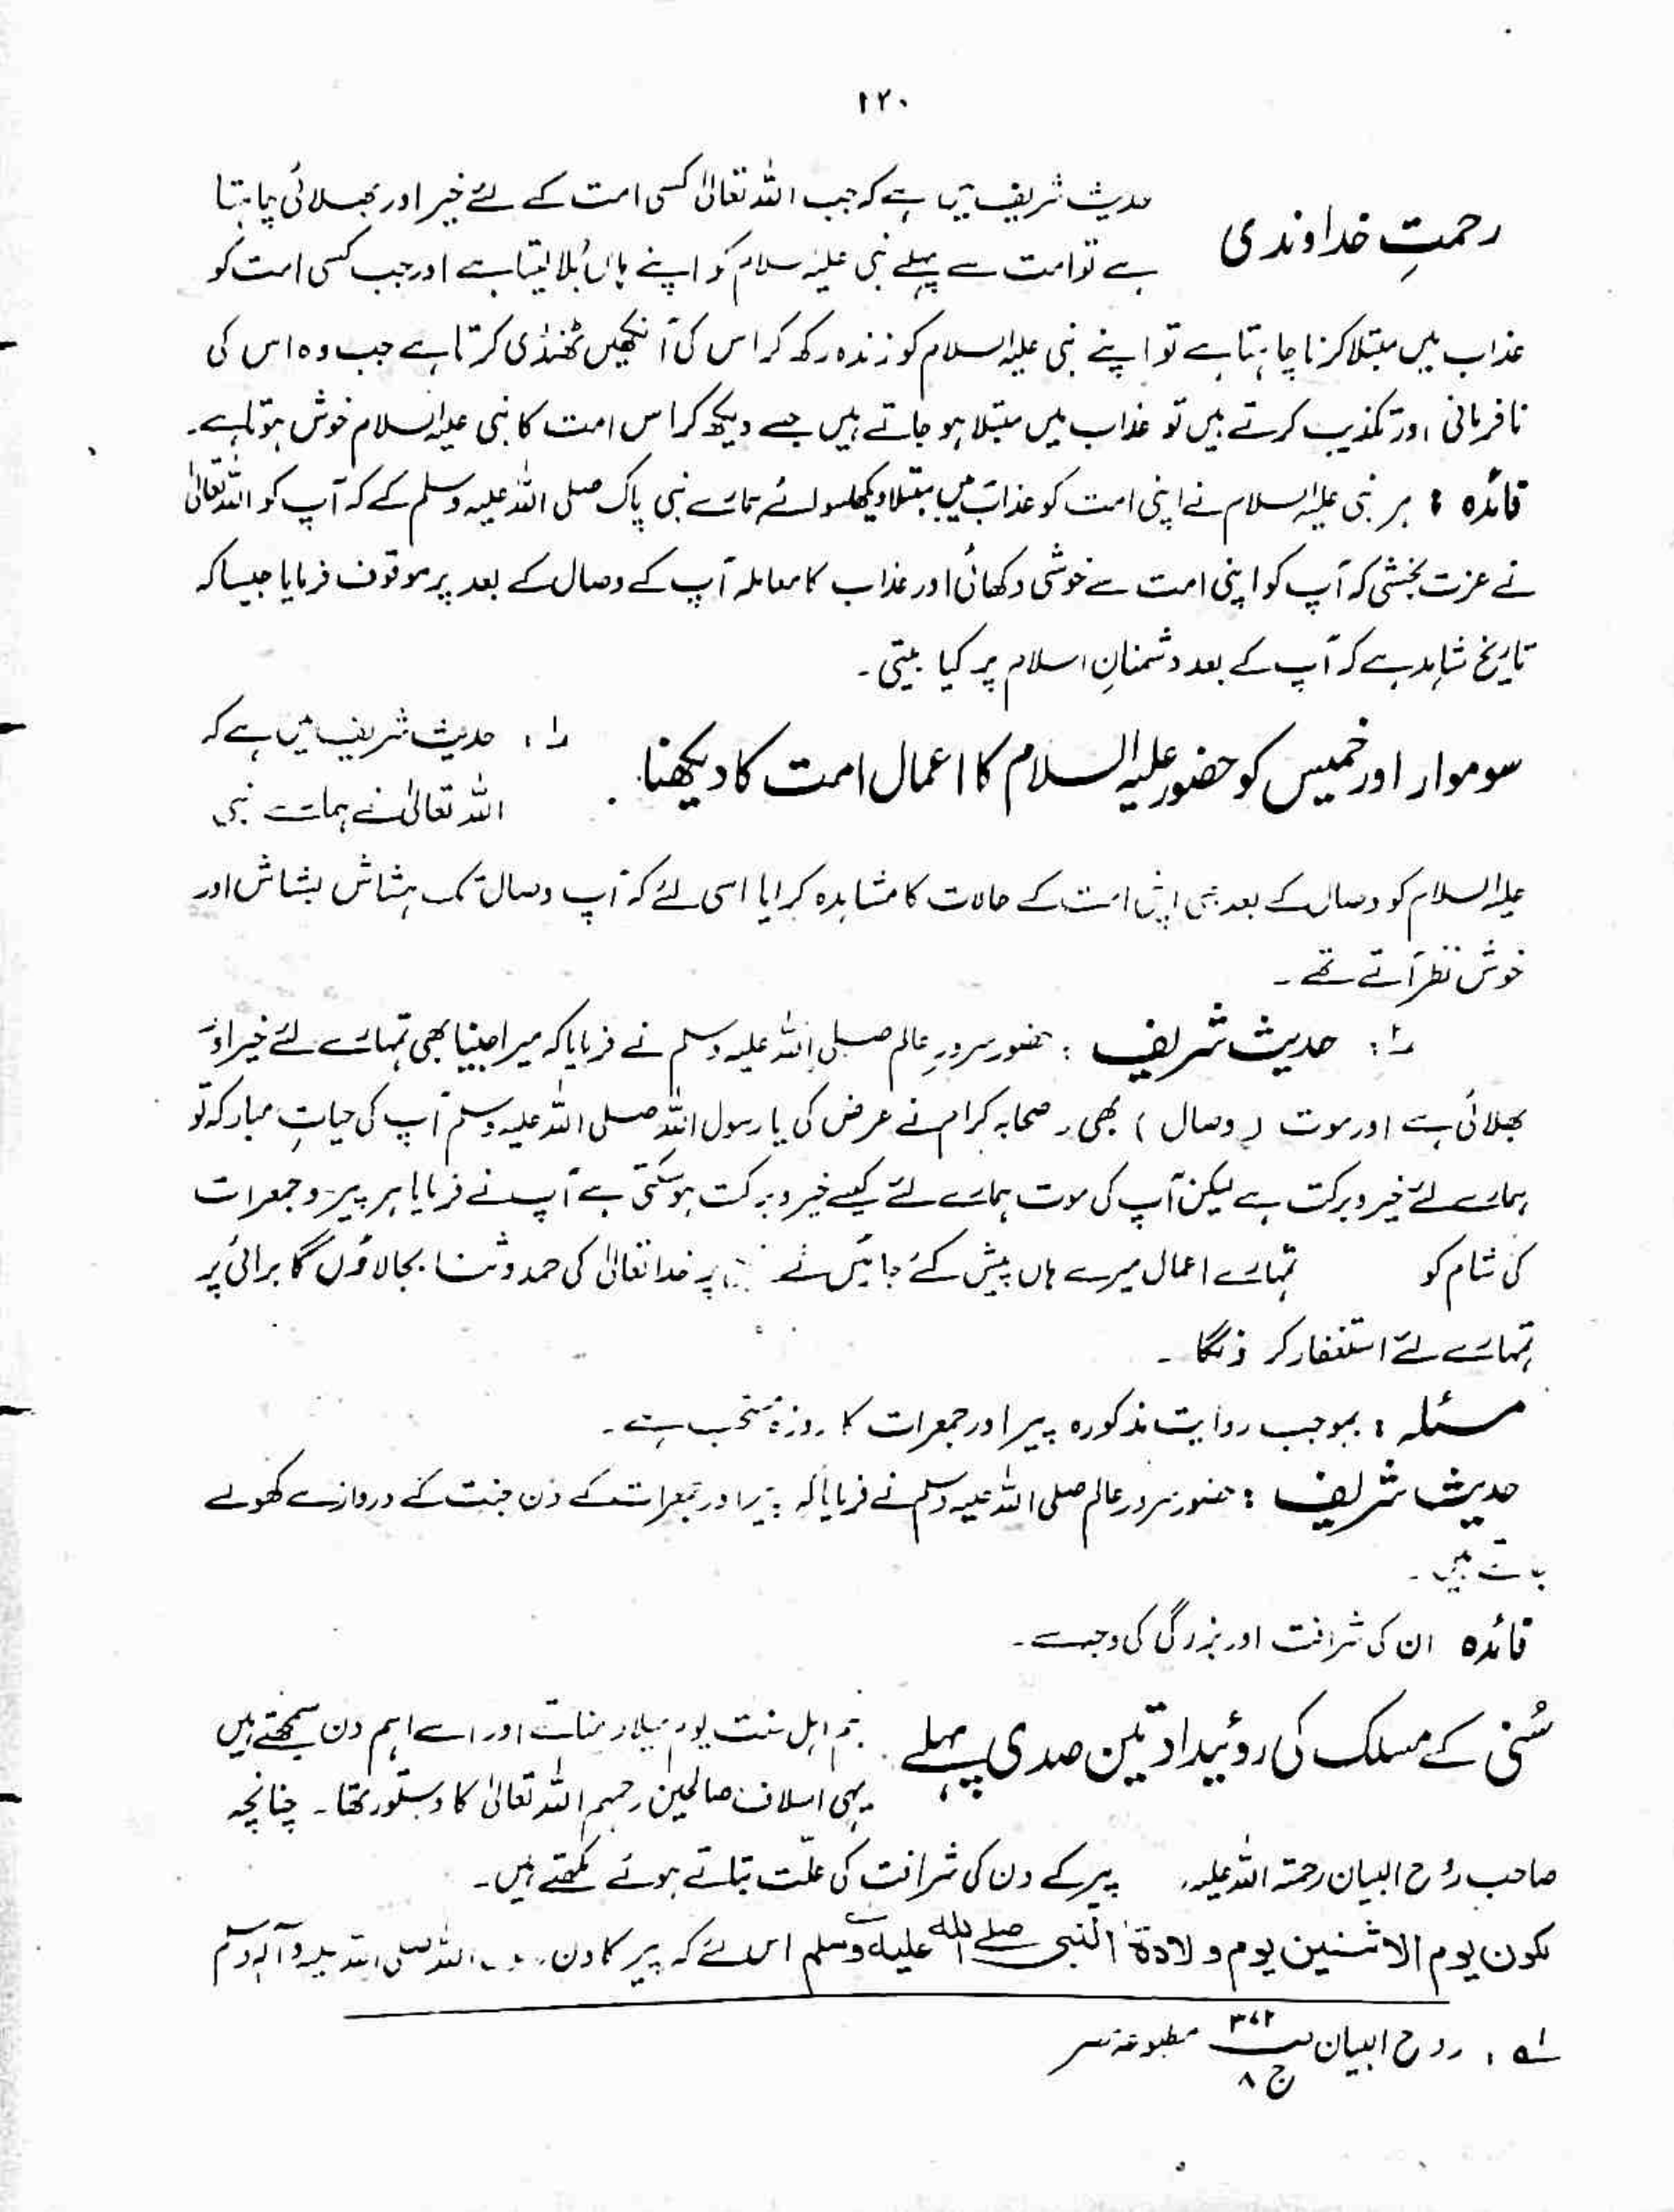 ۱۲۰
رحمتِ خداوندی
حدیث شریف میں ہے کہ جب اللہ تعالیٰ کسی امت کے لئے خیر اور بھلائی چاہتا
ہے تو امت سے پہلے نبی علیہ سلام کو اپنے ہاں بُلا لیتا ہے اور جب کسی امت کو
عذاب میں مبتلا کرنا چاہتا ہے تو اپنے نبی علیہ السلام کو زندہ رکھ کر اس کی آنکھیں ٹھنڈی کرتا ہے جب وہ اس کی
نافرمانی اور تکذیب کرتے ہیں تو عذاب میں مبتلا ہو جاتے ہیں جسے دیکھ کر اس امت کا نبی علیہ السلام خوش ہوتا ہے۔
فائدہ : ہر نبی علیہ السلام نے اپنی امت کو عذاب میں مبتلا دیکھا سوائے ہمارے نبی پاک صلی اللہ علیہ وسلم کے کہ آپ کو اللہ تعالیٰ
نے عزت بخشی کہ آپ کو اپنی امت سے خوشی دکھائی اور عذاب کا معاملہ آپ کے وصال کے بعد پر موقوف فرمایا جیسا کہ
تاریخ شاہد ہے کہ آپ کے بعد دشمنانِ اسلام پر کیا بیتی۔
سوموار اور خمیس کو حضور علیہ السلام کا اعمال امت کا دیکھنا
۱: حدیث شریف میں ہے کہ
اللہ تعالیٰ نے ہمارے نبی
علیہ السلام کو وصال کے بعد ہی اپنی امت کے حالات کا مشاہدہ کرایا اسی لئے کہ آپ وصال تک ہشاش بشاش اور
خوش نظر آتے تھے۔
حدیث شریف : حضور سرورِ عالم صلی اللہ علیہ وسلم نے فرمایا کہ میرا جینا بھی تمہارے لئے خیر اور
بھلائی ہے اور موت (وصال) بھی۔ صحابہ کرام نے عرض کی یا رسول اللہ صلی اللہ علیہ وسلم آپ کی حیاتِ مبارکہ تو
ہمارے لئے خیر و برکت ہے لیکن آپ کی موت ہمارے لئے کیسے خیر و برکت ہو سکتی ہے آپ نے فرمایا ہر پیر و جمعرات
کی شام کو تمہارے اعمال میرے ہاں پیش کئے جائیں گے پر خدا تعالیٰ کی حمد و ثنا بجا لاؤں گا برائی پر
تمہارے لئے استغفار کروں گا۔
مسئلہ : بموجب روایت مذکورہ پیر اور جمعرات کا روزہ مستحب ہے۔
حدیث شریف : حضور سرور عالم صلی اللہ علیہ وسلم نے فرمایا کہ پیر اور جمعرات کے دن جنت کے دروازے کھولے
جاتے ہیں۔
فائدہ ان کی شرافت اور بزرگی کی وجہ سے۔
سُنی کے مسلک کی روئیداد تین صدی پہلے
ہم اہل سنت یوم میلاد مناتے اور اسے اہم دن سمجھتے ہیں
یہی اسلاف صالحین رحمہم اللہ تعالیٰ کا دستور تھا۔ چنانچہ
صاحب روح البیان رحمۃ اللہ علیہ پیر کے دن کی شرافت کی علّت بتاتے ہوئے لکھتے ہیں۔
لکون یوم الاثنین یوم ولادة النبی صلے اللہ علیہ وسلم اس لئے کہ پیر کا دن اللہ صلی اللہ علیہ وآلہ وسلم
لہ : روح البیان ج ۸ مطبوعہ مصر